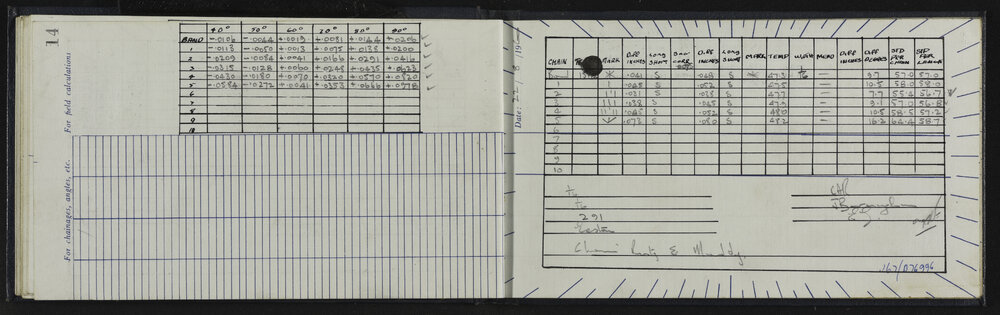 14
For field calculations
For chainages, angles, etc.
40° 50° 60° 70° 80° 90°
BAND -.0106 -.0044 +.0019 +.0081 +.0144 +.0206
1 -.0113 -.0050 +.0013 +.0075 +.0138 +.0200
2 -.0209 -.0084 +.0041 +.0166 +.0291 +.0416
3 -.0315 -.0128 +.0060 +.0248 +.0435 +.0623
4 -.0430 -.0180 +.0070 +.0320 +.0570 +.0820
5 -.0584 -.0272 +.0041 +.0353 +.0666 +.0978
6
7
8
9
10
Date: 22.8.195
CHAIN MARK DIFF INCHES LONG SHORT DIFF INCHES LONG SHORT TEMP MEAN DIFF INCHES DIFF DEGREES STD PER CHAIN STD PER CHAIN
.041 S .048 S 47.5 — 9.7 57.0 57.0
1 .045 S .052 S 47.5 — 10.5 58.0 58.0
2 .031 S .038 S 47.7 — 7.7 55.4 56.7
3 .038 S .045 S 47.9 — 9.1 57.0 56.8
4 .045 S .052 S 48.0 — 10.5 58.5 57.2
5 .073 S .080 S 48.2 — 16.2 64.4 58.7
6
7
8
9
10
291
Chain Rusty & Muddy.